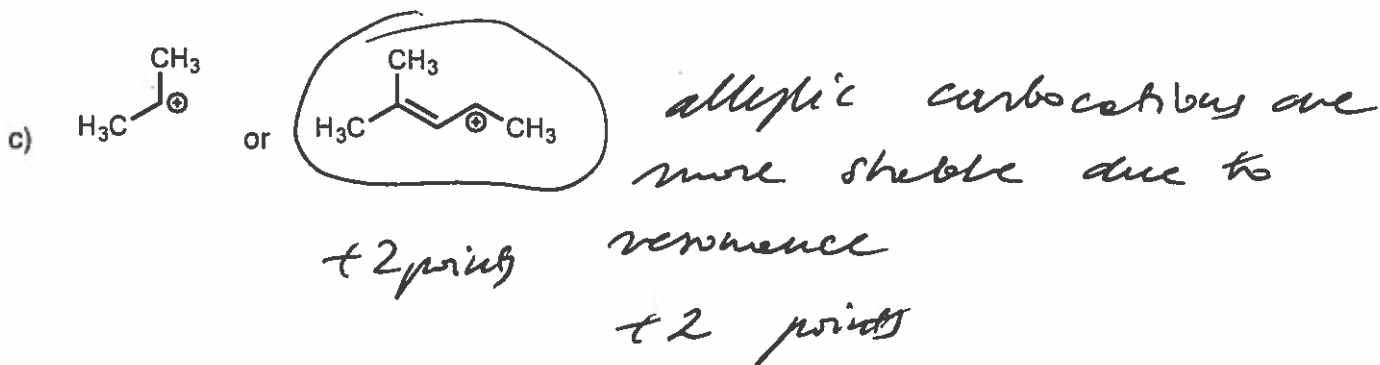 c)
CH₃
H₃C
⊕
or
CH₃
H₃C
⊕
CH₃
allylic carbocations are
more stable due to
resonance
+2 points
+2 points